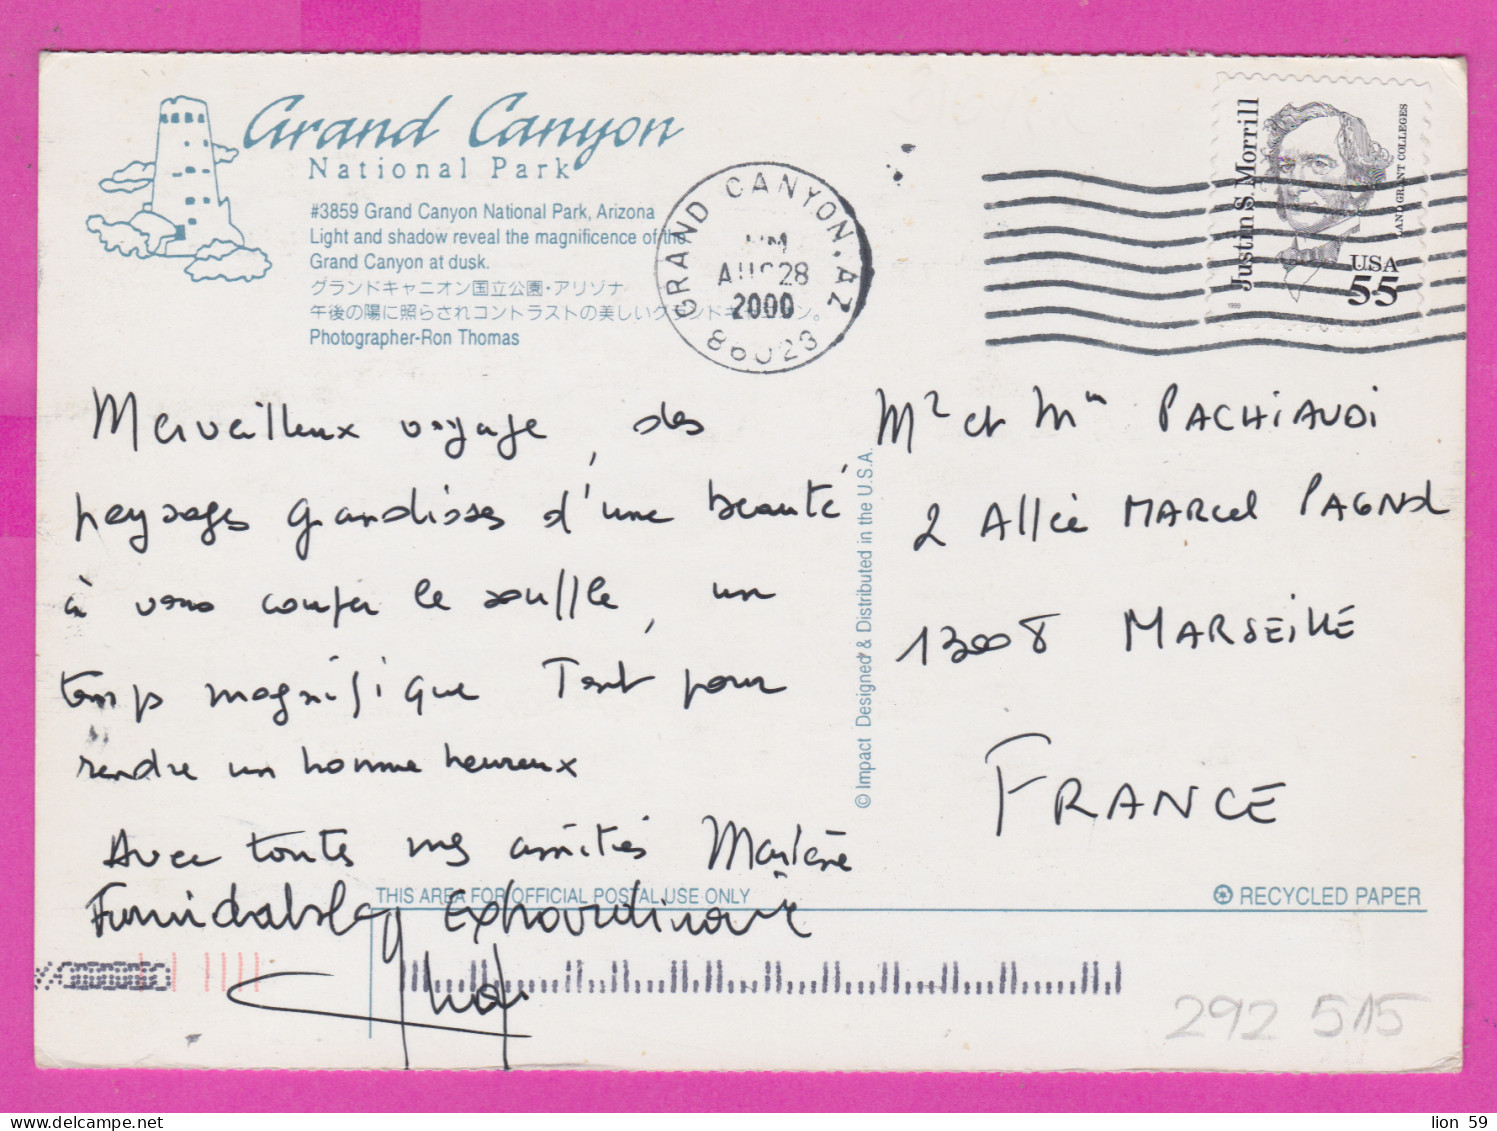 Grand Canyon
National Park
#3859 Grand Canyon National Park, Arizona
Light and shadow reveal the magnificence of the
Grand Canyon at dusk.
グランドキャニオン国立公園・アリゾナ
午後の陽に照らされコントラストの美しいグランドキャニオン。
Photographer-Ron Thomas
GRAND CANYON. AZ
AUG 28
2000
86023
Justin S. Morrill
LAND GRANT COLLEGES
USA
55
Merveilleux voyage, des
paysages grandioses d'une beauté
à vous couper le souffle, un
temps magnifique Tout pour
rendre un homme heureux
Avec toutes mes amitiés Marlène
Extraordinaire
© Impact Designed & Distributed in the U.S.A.
Mr et Mme PACHIAUDI
2 Allée MARCEL PAGNOL
13008 MARSEILLE
FRANCE
THIS AREA FOR OFFICIAL POSTAL USE ONLY
RECYCLED PAPER
292 515
lion 59